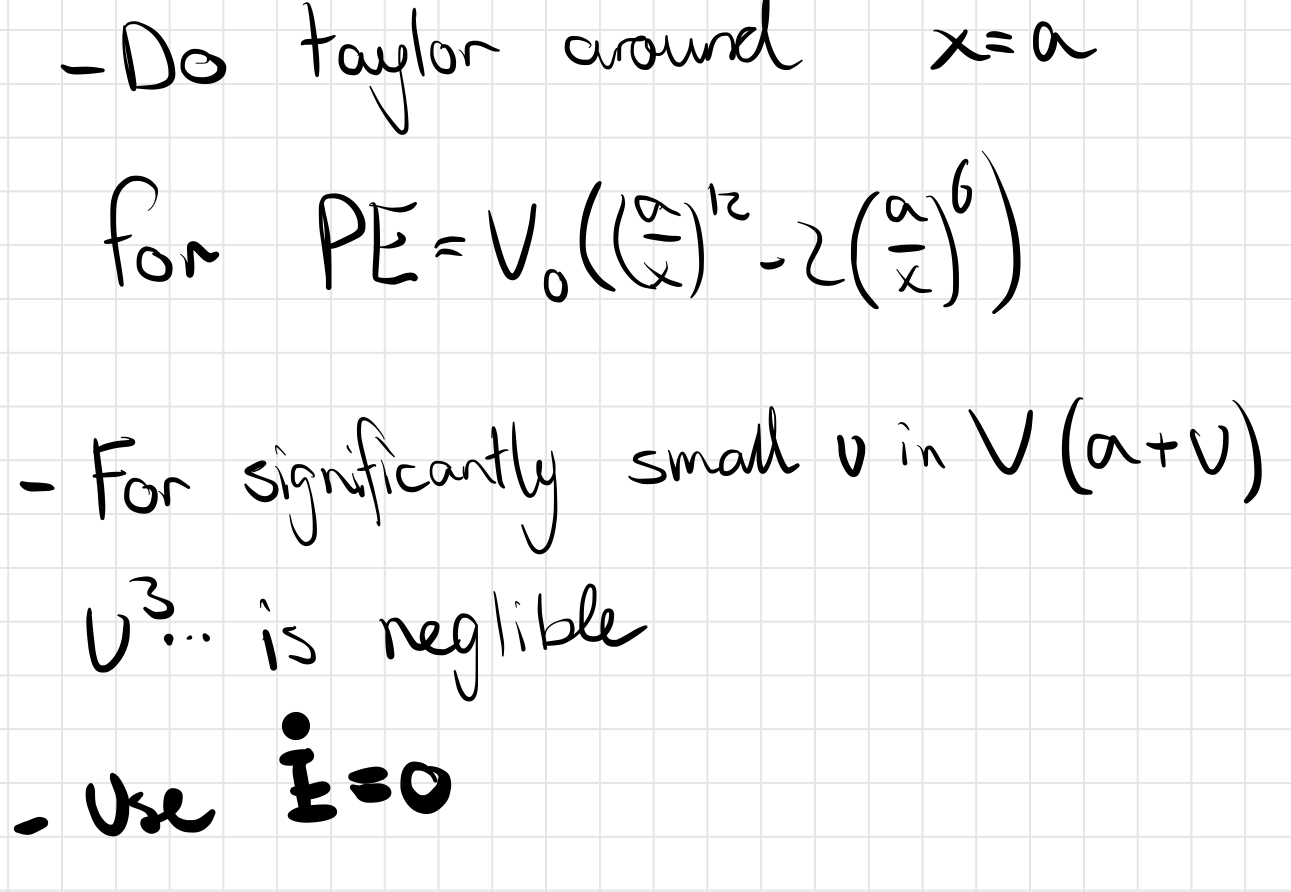 - Do taylor around x=a
for PE = V₀((a/x)¹² - 2(a/x)⁶)
- For significantly small u in V(a+u)
u³... is neglible
- Use Ė=0